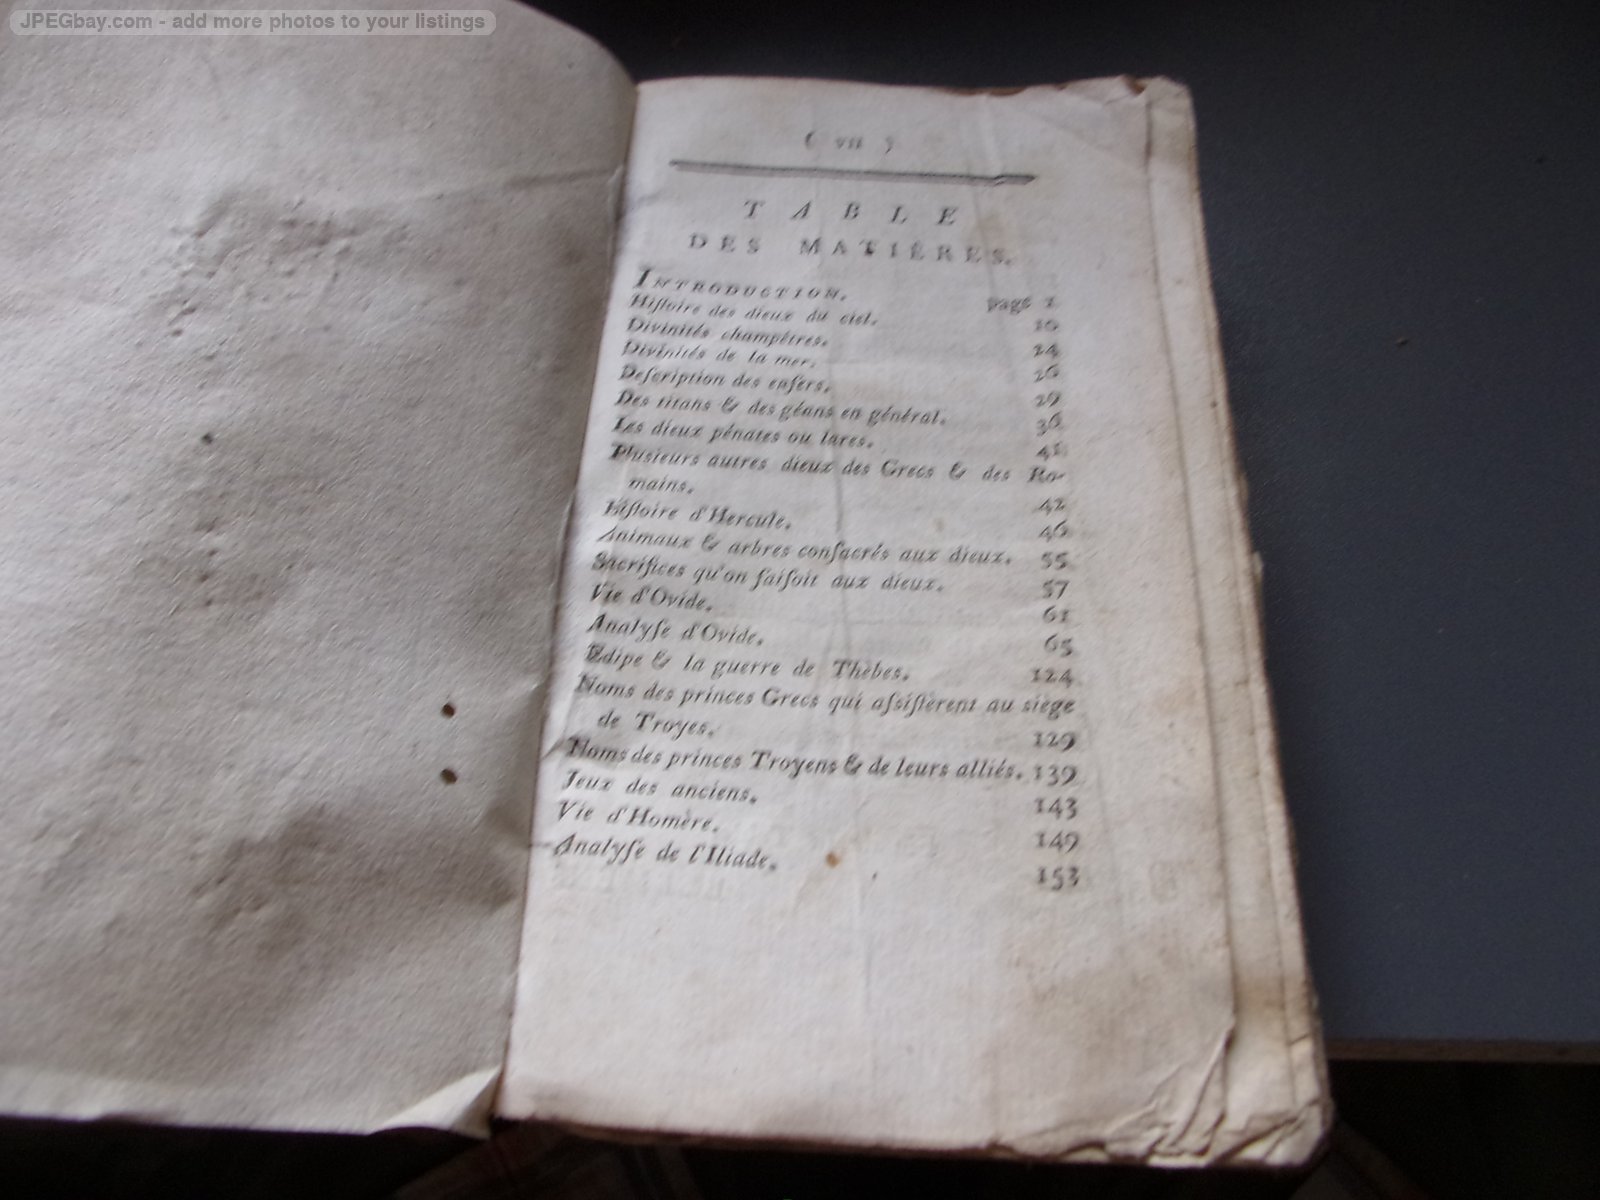 JPEGbay.com - add more photos to your listings
( vii )
TABLE
DES MATIÈRES.
INTRODUCTION. page 1
Hiſtoire des dieux du ciel. 10
Divinités champêtres. 24
Divinités de la mer. 26
Deſcription des enfers. 29
Des titans & des géans en général. 36
Les dieux pénates ou lares. 41
Pluſieurs autres dieux des Grecs & des Ro-
mains. 42
Hiſtoire d'Hercule. 46
Animaux & arbres conſacrés aux dieux. 55
Sacrifices qu'on faiſoit aux dieux. 57
Vie d'Ovide. 61
Analyſe d'Ovide. 65
Œdipe & la guerre de Thèbes. 124
Noms des princes Grecs qui aſsiſtèrent au siège
de Troyes. 129
Noms des princes Troyens & de leurs alliés. 139
Jeux des anciens. 143
Vie d'Homère. 149
Analyſe de l'Iliade. 153